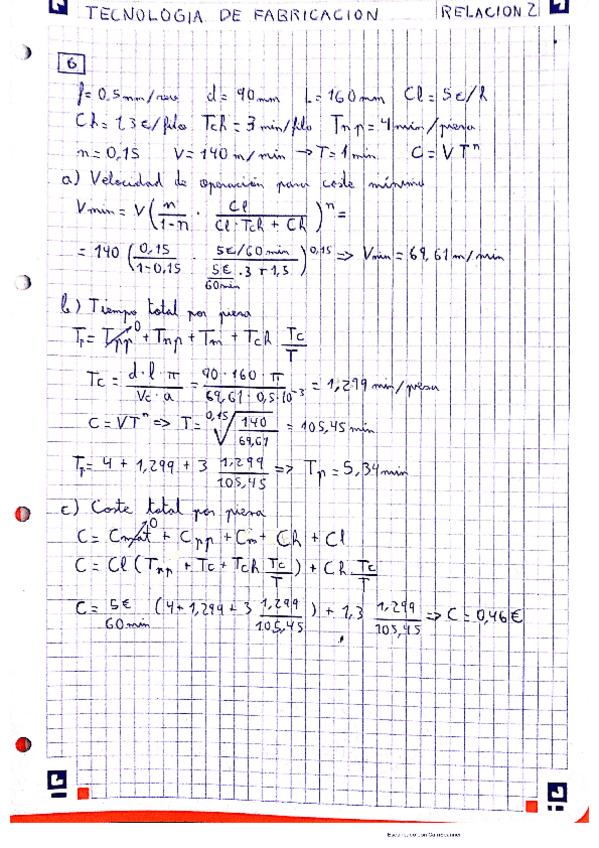 TECNOLOGIA DE FABRICACION RELACION 2
6
f= 0,5mm/rev d= 90mm L=160mm Cl=5€/h
Ch=1,3€/filo Tch=3min/filo Tnp=4min/pieza
n=0,15 V=140 m/min → T=1min C=VTⁿ
a) Velocidad de operación para coste mínimo
Vmin = V (n/1-n · Cl/Cl·Tch + Ch)ⁿ =
= 140 (0,15/1-0,15 · 5€/60min / 5€/60min ·3 +1,3)^0,15 => Vmin= 69,61 m/min
b) Tiempo total por pieza
Tp = Tpp⁰ + Tnp + Tm + Tch Tc/T
Tc = d·l·π/Vc·a = 90·160·π/69,61·0,5·10⁻³ = 1,299 min/pieza
C=VTⁿ => T= 0,15√140/69,61 = 105,45 min
Tp= 4 + 1,299 + 3 1,299/105,45 => Tp= 5,34min
c) Coste total por pieza
C= Cmat⁰ + Cpp + Cm + Ch + Cl
C= Cl (Tnp + Tc + Tch Tc/T) + Ch Tc/T
C= 5€/60min (4+1,299+3 1,299/105,45) + 1,3 1,299/105,45 => C=0,46€